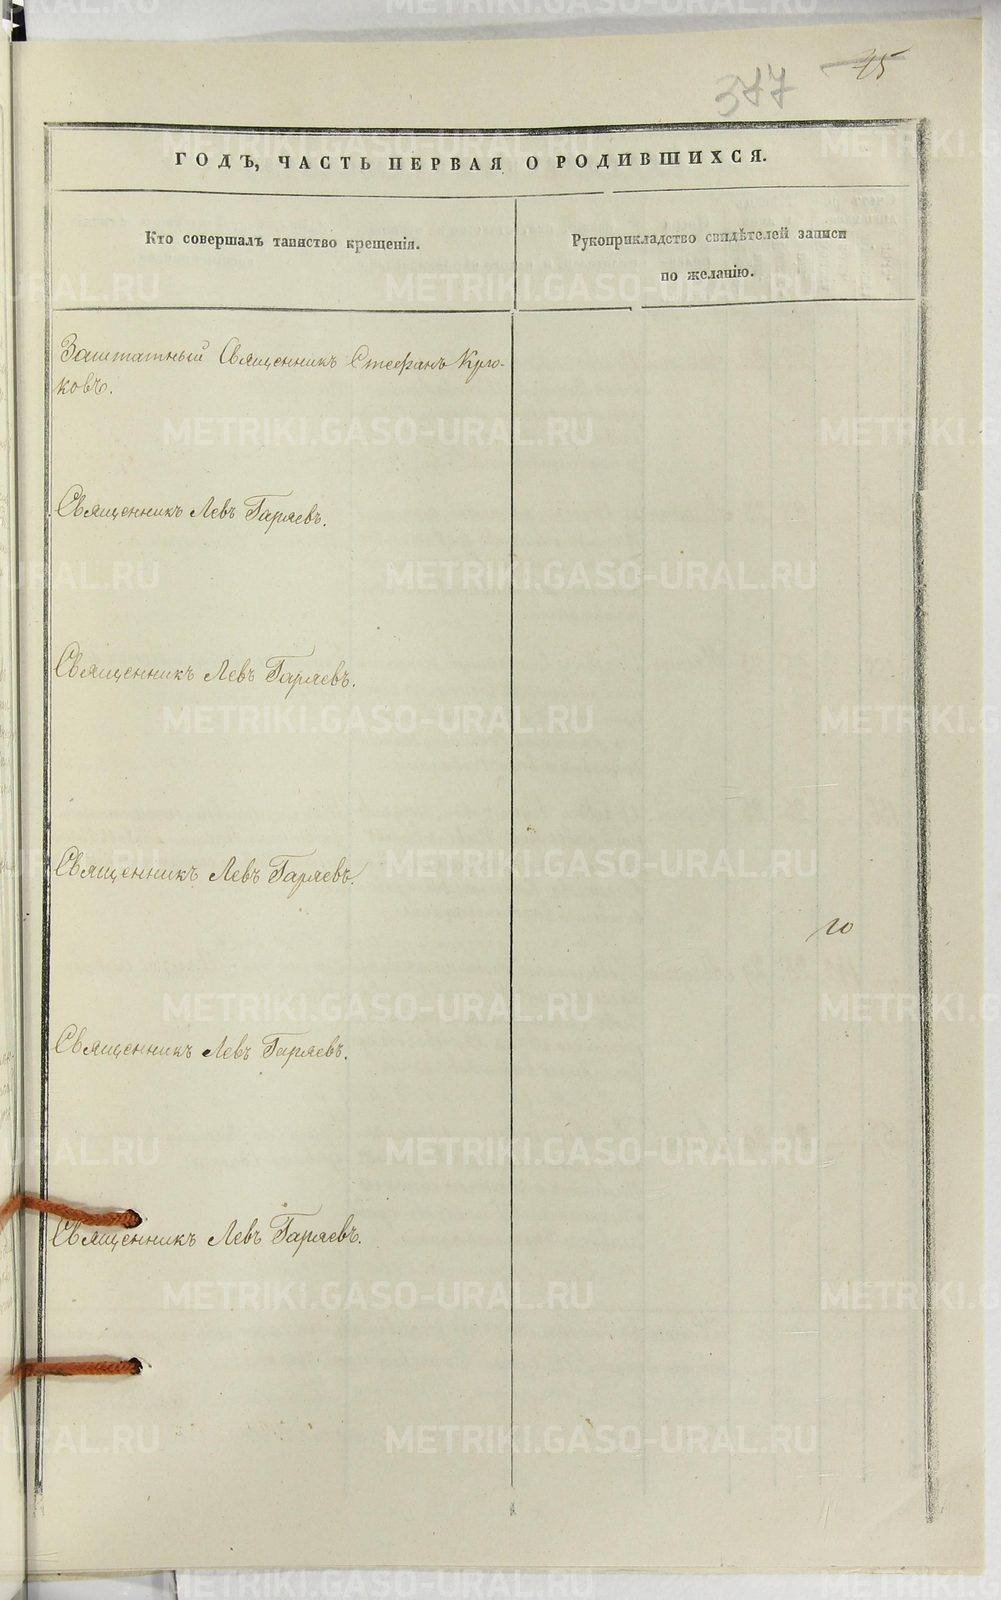 377
ГОДЪ, ЧАСТЬ ПЕРВАЯ О РОДИВШИХСЯ.
Кто совершалъ таинство крещенія.
Рукоприкладство свидѣтелей записи
по желанію.
Заштатный Священникъ Стефанъ Крю-
ковъ.
Священникъ Левъ Гаряевъ.
Священникъ Левъ Гаряевъ.
Священникъ Левъ Гаряевъ.
Священникъ Левъ Гаряевъ.
Священникъ Левъ Гаряевъ.
METRIKI.GASO-URAL.RU